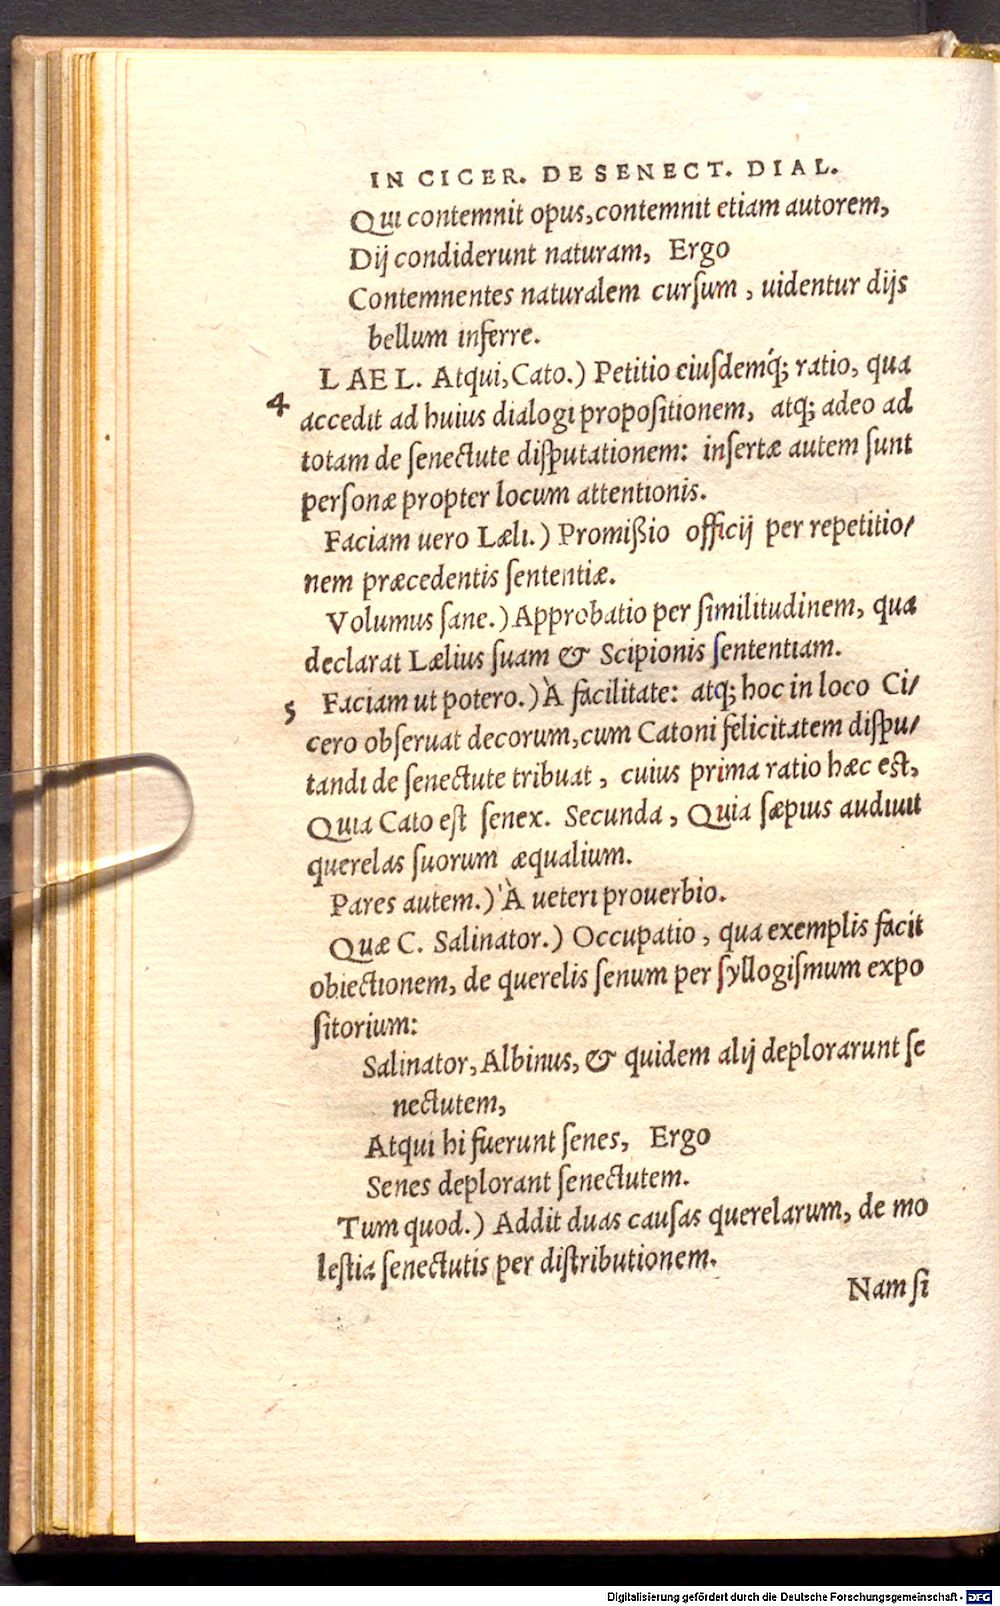 IN CICER. DE SENECT. DIAL.
Qui contemnit opus, contemnit etiam autorem,
Dij condiderunt naturam, Ergo
Contemnentes naturalem curſum, uidentur dijs
bellum inferre.
LAEL. Atqui, Cato.) Petitio eiuſdemq́; ratio, qua
4 accedit ad huius dialogi propoſitionem, atq; adeo ad
totam de ſenectute diſputationem: inſertæ autem ſunt
perſonæ propter locum attentionis.
Faciam uero Læli.) Promißio officij per repetitio/
nem præcedentis ſententiæ.
Volumus ſane.) Approbatio per ſimilitudinem, qua
declarat Lælius ſuam & Scipionis ſententiam.
5 Faciam ut potero.) À facilitate: atq; hoc in loco Ci/
cero obſeruat decorum, cum Catoni felicitatem diſpu/
tandi de ſenectute tribuat, cuius prima ratio hæc est,
Quia Cato eſt ſenex. Secunda, Quia ſæpius audiuit
querelas ſuorum æqualium.
Pares autem.) À ueteri prouerbio.
Quæ C. Salinator.) Occupatio, qua exemplis facit
obiectionem, de querelis ſenum per ſyllogiſmum expo
ſitorium:
Salinator, Albinus, & quidem alij deplorarunt ſe
nectutem,
Atqui hi fuerunt ſenes, Ergo
Senes deplorant ſenectutem.
Tum quod.) Addit duas cauſas querelarum, de mo
leſtia ſenectutis per diſtributionem.
Nam ſi
Digitalisierung gefördert durch die Deutsche Forschungsgemeinschaft - DFG